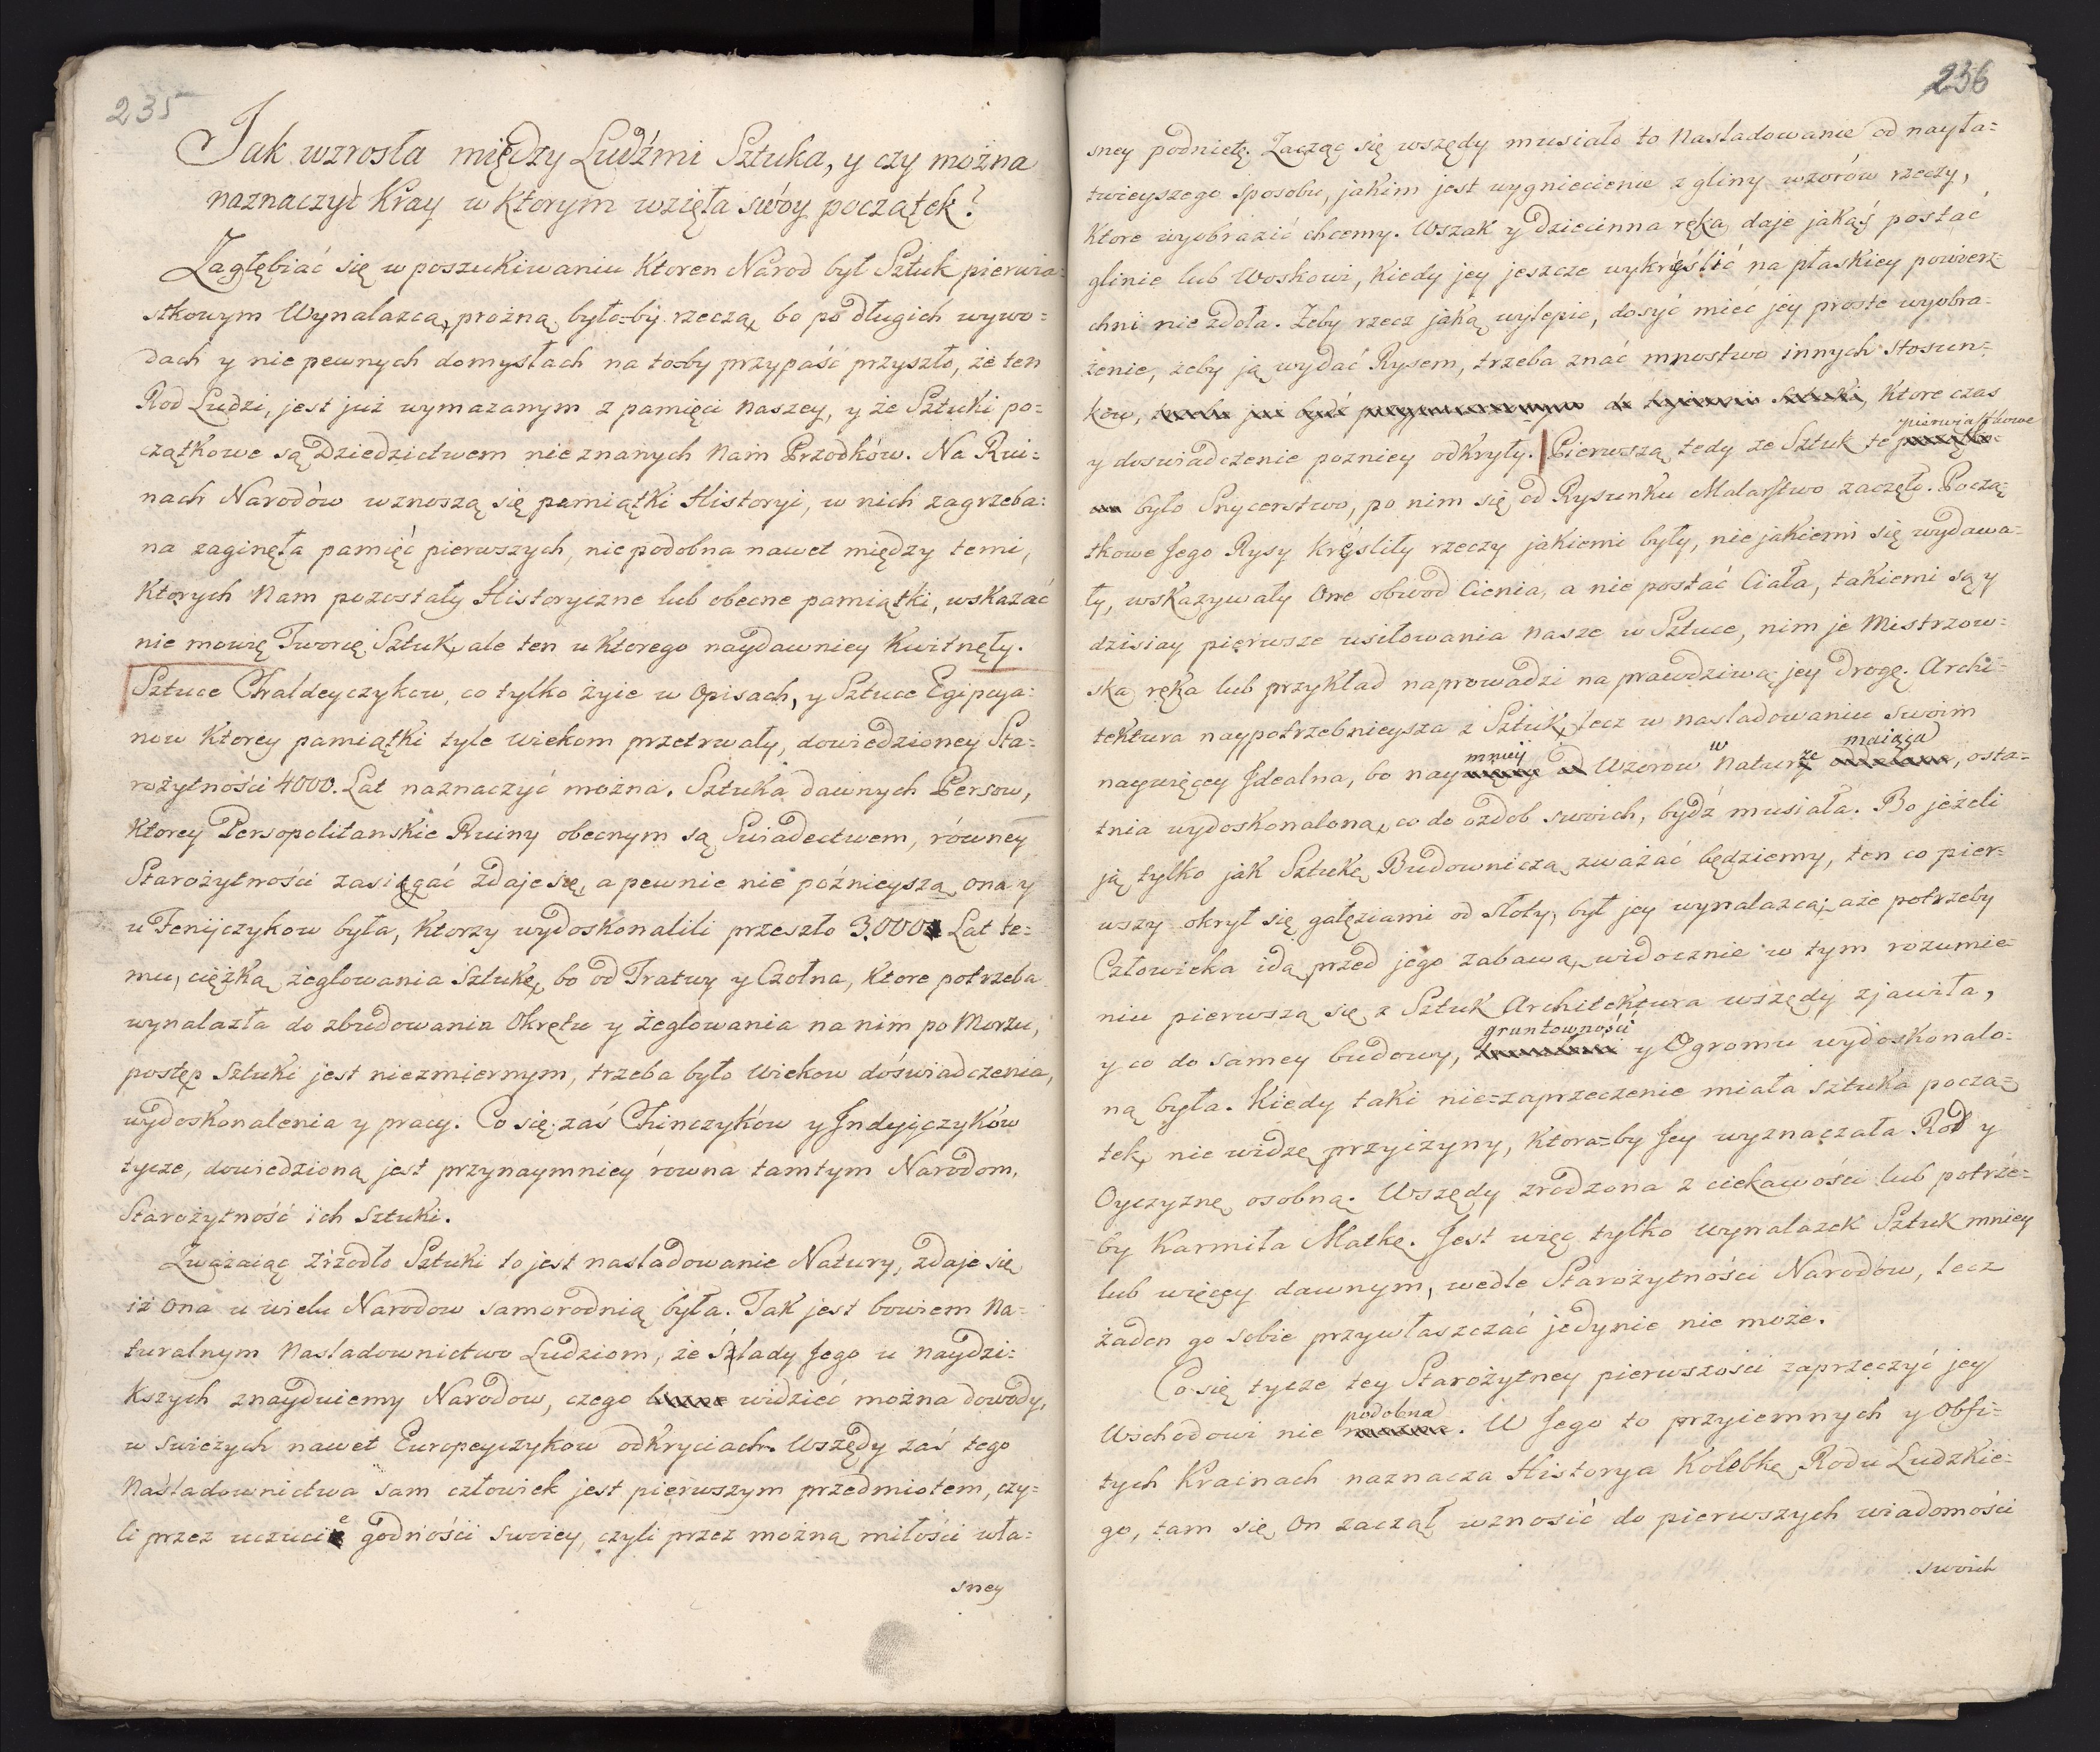 235
Jak wzrosła między Ludźmi Sztuka, y czy można
naznaczyć Kray w Ktorym wzięła swóy początek?
Zagłębiać się w poszukiwaniu Ktoren Narod był Sztuk pierwia=
stkowym Wynalazcą, prożną było=by rzeczą, bo po długich wywo=
dach y nie pewnych domysłach na to=by przypaść przyszło, że ten
Rod Ludzi, jest już wymazanym z pamięci naszey, y że Sztuki po=
czątkowe są Dziedzictwem nieznanych Nam Przodków. Na Rui=
nach Narodów wznoszą się pamiątki Historyi, w nich zagrzeba=
na zaginęła pamięć pierwszych, nie podobna nawet między temi,
Ktorych Nam pozostały Historyczne lub obecne pamiątki, wskazać
nie mowię Tworcę Sztuk, ale ten u Ktorego naydawniey Kwitnęły.
Sztuce Chaldeyczykow, co tylko żyie w Opisach, y Sztuce Egipcya=
now Ktorey pamiątki tyle wiekom przetrwały, dowiedzioney Sta=
rożytności 4000. Lat naznaczyć można. Sztuka dawnych Persow,
Ktorey Persopolitanskie Ruiny obecnym są Swiadectwem, równey
Starożytności zasięgać zdaje się, a pewnie nie poźnieyszą ona y
u Feniyczykow była, Ktorzy wydoskonalili przeszło 3.000 Lat te=
mu, ciężką żeglowania Sztukę, bo od Tratwy y Czołna, Ktore potrzeba
wynalazła do zbudowania Okrętu y żeglowania na nim po Morzu,
postęp Sztuki jest niezmiernym, trzeba było Wiekow doświadczenia,
wydoskonalenia y pracy. Co się zaś Chinczyków y Indyiczyków
tycze, dowiedzioną jest przynaymniey równa tamtym Narodom,
Starożytność ich Sztuki.
Zważaiąc źrzodło Sztuki to jest nasladowanie Natury, zdaje się
iż ona u wielu Narodow samorodnią była. Tak jest bowiem Na=
turalnym Nasladownictwo Ludziom, że Ślady Jego u naydzi=
Kszych znayduiemy Narodow, czego widzieć można dowody,
w swieżych nawet Europeyczykow odkryciach. Wszędy zaś tego
Naśladownictwa sam człowiek jest pierwszym przedmiotem, czy=
li przez uczucie godności swoiey, czyli przez możną miłości wła=
sney
236
sney podnietę. Zacząc się wszędy musiało to Nasladowanie od nayła=
twieyszego sposobu, jakim jest wygniecienie z gliny wzorów rzeczy,
Ktore wyobrazić chcemy. Wszak y Dziecinna ręka, daje jakąś postać
glinie lub Woskowi, Kiedy jey jeszcze wykryślić na płaskiey powierz=
chni nie zdoła. Żeby rzecz jaką wylepić, dosyć mieć jey proste wyobra=
żenie, żeby ją wydać Rysem, trzeba znać mnostwo innych stosun=
kow, Ktore czas
y doswiadczenie pozniey odkryły. Pierwszą tedy ze Sztuk te pierwiastkowe
było Snycerstwo, po nim się od Rysunku Malarstwo zaczęło. Począ=
tkowe Jego Rysy Kryslily rzeczy jakiemi były, nie jakiemi się wydawa=
ły, wskazywały One obwod Cienia, a nie postać Ciała, takiemi są y
dzisiay pierwsze usiłowania nasze w Sztuce, nim je Mistrzow=
ska ręka lub przykład naprowadzi na prawdziwą jey Drogę. Archi=
tektura naypotrzebnieysza z Sztuk, lecz w nasladowaniu swoim
naywięcey Idealna, bo naymniey Wzorow w Naturze maiąca, osta=
tnia wydoskonaloną, co do ozdob swoich, bydź musiała. Bo jeżeli
ją tylko jak Sztukę Budowniczą zważać będziemy, ten co pier=
wszy okrył się gałęziami od słoty, był jey wynalazcą; a że potrzeby
Człowieka idą przed jego zabawą, widocznie w tym rozumie=
niu pierwszą się z Sztuk Architektura wszędy zjawiła,
y co do samey budowy, gruntowności y Ogromu wydoskonalo=
ną była. Kiedy taki nie=zaprzeczenie miała sztuka począ=
tek, nie widzę przyczyny, Ktora=by Jey wyznaczała Rod y
Oyczyznę osobną. Wszędy zrodzona z ciekawości lub potrze=
by Karmiła Matkę. Jest więc tylko wynalazek Sztuk mniey
lub więcey dawnym, wedle Starożytności Narodów, lecz
żaden go sobie przywłaszczać jedynie nie może.
Co się tycze tey Starożytney pierwszości zaprzeczyć jey
Wschodowi nie podobna. W Jego to przyiemnych y Obfi=
tych Krainach naznacza Historya Kolebkę Rodu Ludzkie=
go, tam się On zaczął wznosić do pierwszych wiadomości
swoich